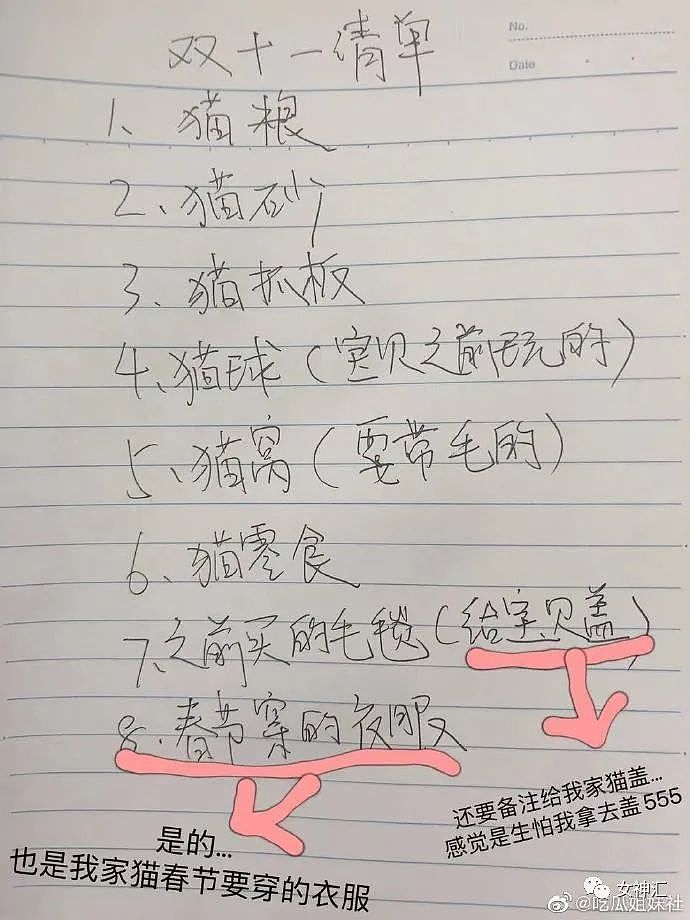 No.
Date
双十一清单
1、猫粮
2、猫砂
3、猫抓板
4、猫球(宝贝之前玩的)
5、猫窝(要带毛的)
6、猫零食
7、之前买的毛毯(给宝贝盖)
8、春节穿的衣服
还要备注给我家猫盖...
感觉是生怕我拿去盖555
是的...
也是我家猫春节要穿的衣服
女神汇
@吃瓜姐妹社